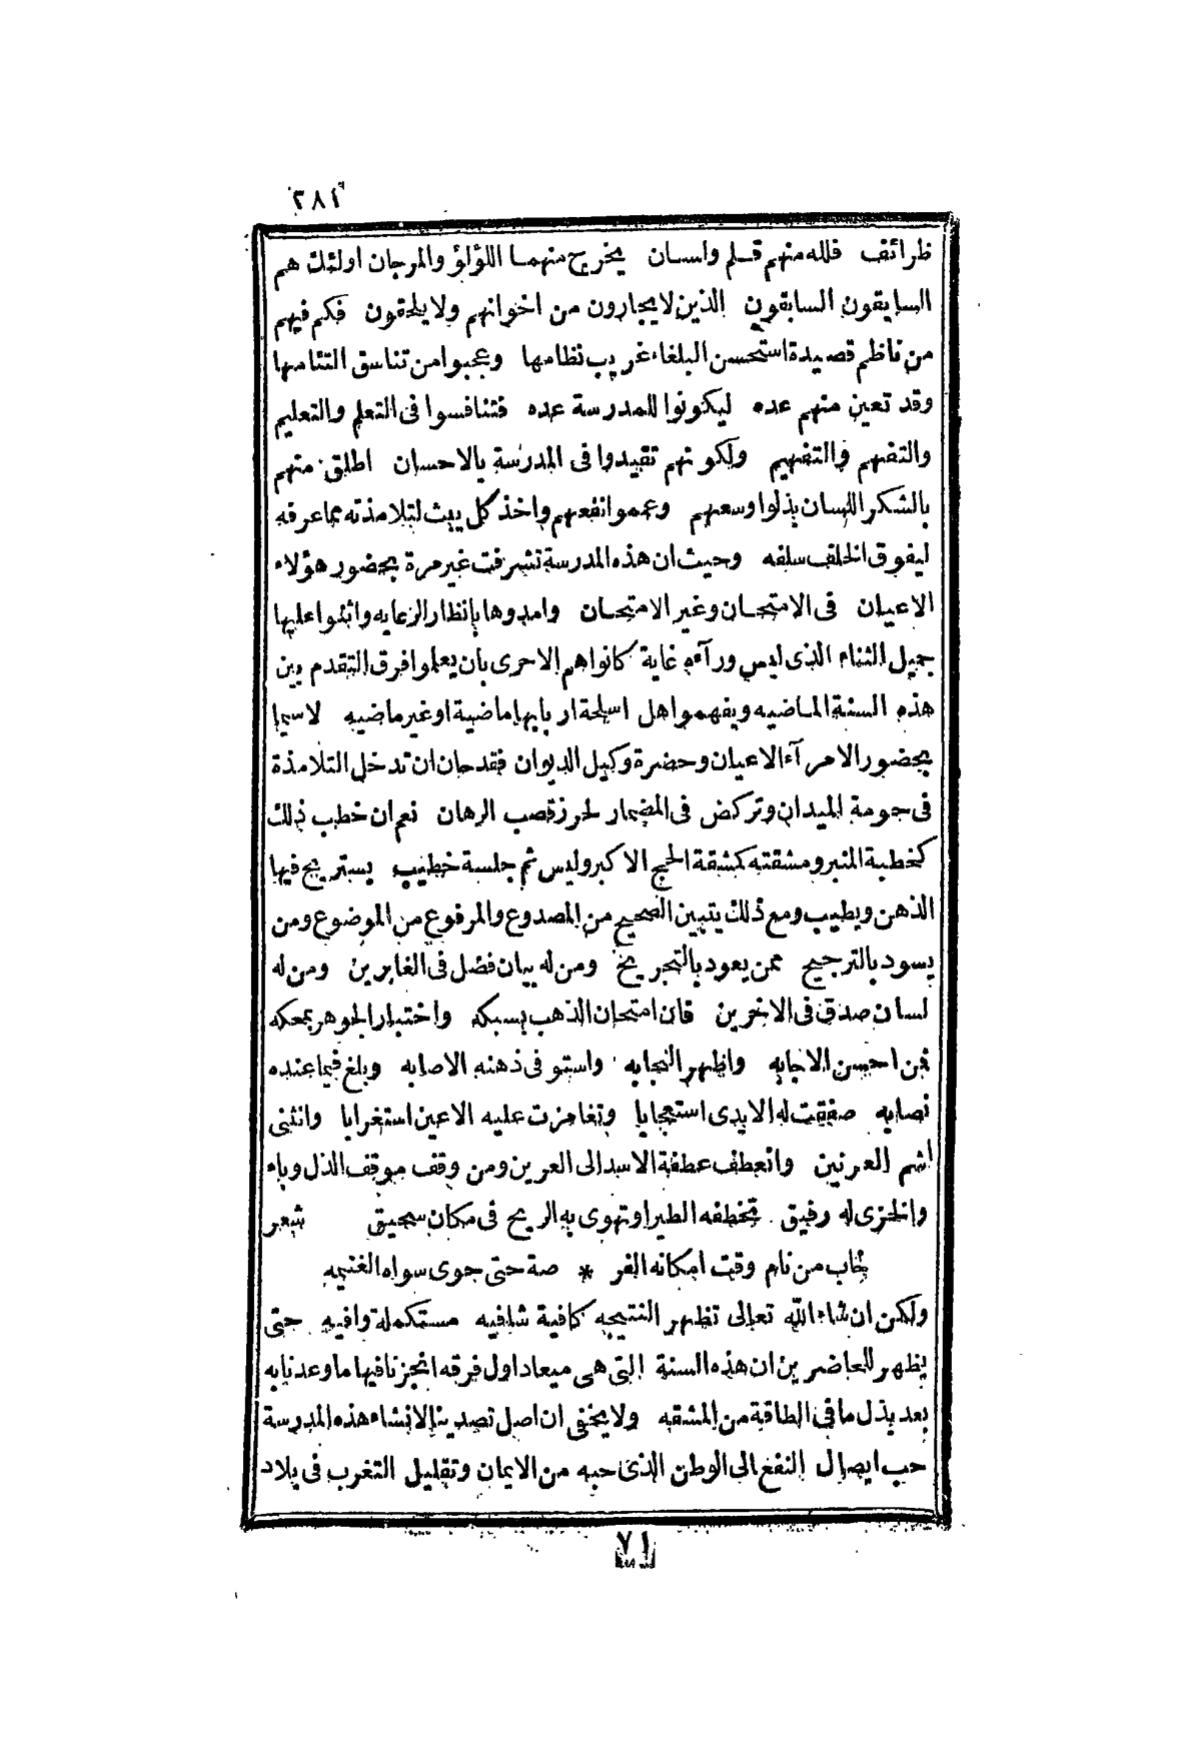 ٢٨١
ظرائف فلله منهم قلم ولسان يخرج منهما اللؤلؤ والمرجان اولئك هم
السابقون السابقون الذين لا يجارون من اخوانهم ولا يلحقون فكم فيهم
من ناظم قصيدة استحسن البلغاء غريب نظامها وعجبوا من تناسق التئامها
وقد تعين منهم عده ليكونوا للمدرسة عده فتنافسوا فى التعلم والتعليم
والتفهم والتفهيم ولكونهم تقيدوا فى المدرسة بالاحسان اطلق منهم
بالشكر اللسان بذلوا وسعهم وعمموا نفعهم واخذ كل يبث لتلامذته ما عرفه
ليفوق الخلف سلفه وحيث ان هذه المدرسة تشرفت غير مرة بحضور هؤلاء
الاعيان فى الامتحان وغير الامتحان وامدوها بانظار الرعايه واثنوا عليها
جميل الثناء الذى ليس ورآءه غاية كانوا هم الاحرى بان يعلموا فرق التقدم بين
هذه السنة الماضيه ويفهموا هل اسلحة اربابها ماضية او غير ماضيه لاسيما
بحضور الامرآء الاعيان وحضرة وكيل الديوان فقد حان ان تدخل التلامذة
فى حومة الميدان وتركض فى المضمار لحرز قصب الرهان نعم ان خطب ذلك
كخطبة المنبر ومشقته كمشقة الحج الاكبر وليس ثم جلسة خطيب يستريح فيها
الذهن ويطيب ومع ذلك يتبين الصحيح من المصدوع والمرفوع من الموضوع ومن
يسود بالترجيح ممن يعود بالتجريح ومن له بيان فضل فى الغابرين ومن له
لسان صدق فى الاخرين فان امتحان الذهب بسبكه واختبار الجوهر بمحكه
فمن احسن الاجابه واظهر النجابه واستوفى ذهنه الاصابه وبلغ فيما عنده
نصابه صفقت له الايدى استعجابا وتغامزت عليه الاعين استغرابا وانثنى
اشم العرنين وانعطف عطفة الاسد الى العرين ومن وقف موقف الذل وباء
والخزى له رفيق تخطفه الطير او تهوى به الريح فى مكان سحيق شعر
خاب من نام وقت امكانه الفر * صة حتى حوى سواه الغنيمه
ولكن ان شاء الله تعالى تظهر النتيجه كافية شافيه مستكملة وافيه حتى
يظهر للحاضرين ان هذه السنة التى هى ميعاد اول فرقه انجزنا فيها ما وعدنا به
بعد بذل ما فى الطاقة من المشقه ولا يخفى ان اصل تصدينا لانشاء هذه المدرسة
حب ايصال النفع الى الوطن الذى حبه من الايمان وتقليل التغرب فى بلاد
٧١